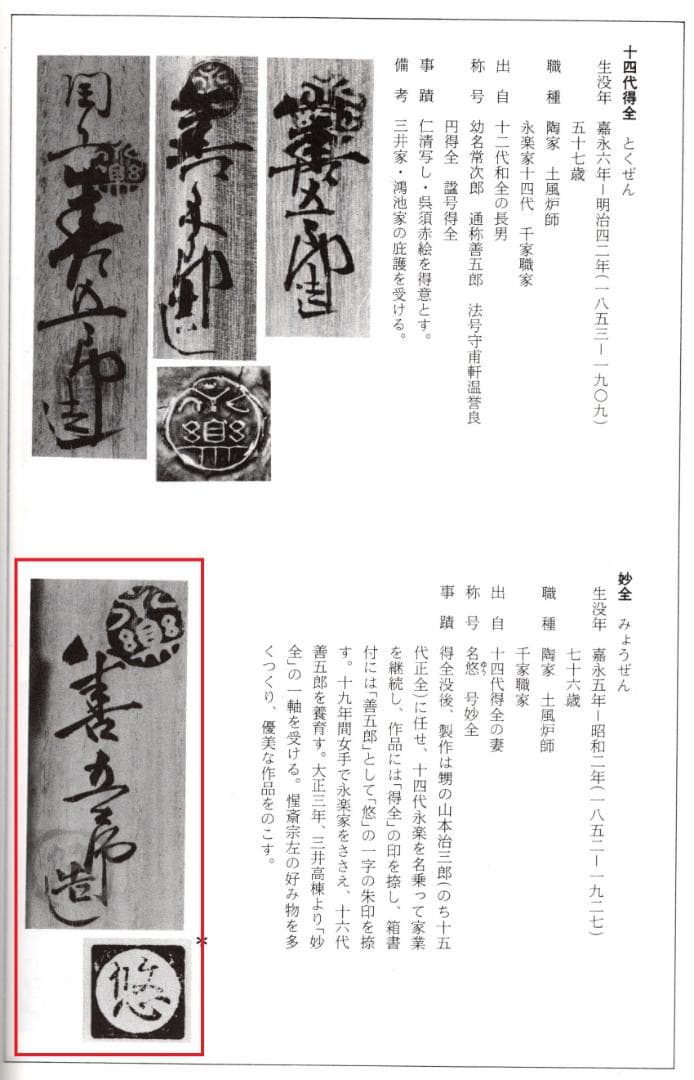 十四代得全 とくぜん
生没年 嘉永六年ー明治四二年(一八五三ー一九〇九)
五十七歳
職種 陶家 土風炉師
永楽家十四代 千家職家
出自 十二代和全の長男
称号 幼名常次郎 通称善五郎 法号守甫軒温誉良
円得全 諡号得全
事蹟 仁清写し・呉須赤絵を得意とす。
備考 三井家・鴻池家の庇護を受ける。
善五郎造
永樂
善五郎造
永樂
善五郎造
永樂
永樂
妙全 みょうぜん
生没年 嘉永五年ー昭和二年(一八五二ー一九二七)
七十六歳
職種 陶家 土風炉師
千家職家
出自 十四代得全の妻
称号 名悠 号妙全
ゆう
事蹟 得全没後、製作は甥の山本治三郎(のち十五
代正全)に任せ、十四代永楽を名乗って家業
を継続し、作品には「得全」の印を捺し、箱書
付には「善五郎」として「悠」の一字の朱印を捺
す。十九年間女手で永楽家をささえ、十六代
善五郎を養育す。大正三年、三井高棟より「妙
全」の一軸を受ける。惺斎宗左の好み物を多
くつくり、優美な作品をのこす。
永樂
善五郎造
*
悠